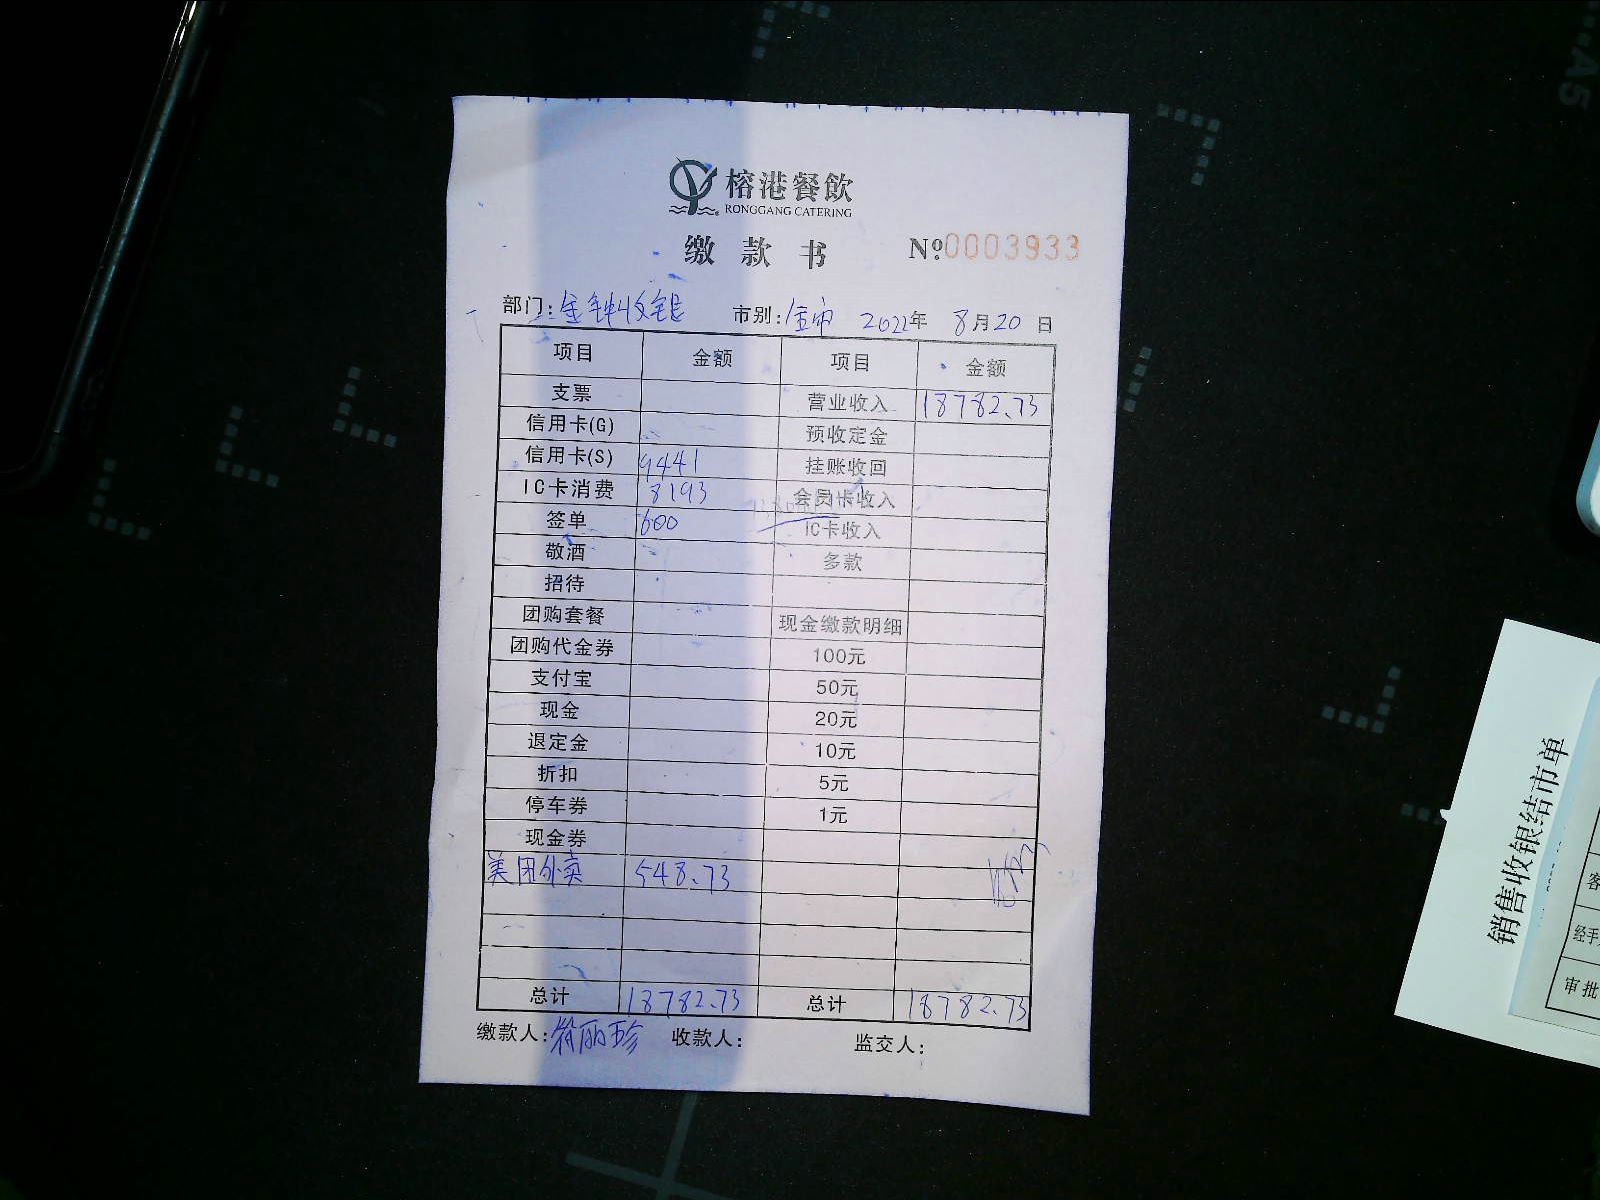 榕港餐飲
RONGGANG CATERING
缴款书 №:0003933
部门:金钟收银 市别:全市 2022年8月20日
项目 金额 项目 金额
支票 营业收入 18782.73
信用卡(G) 预收定金
信用卡(S) 9441 挂账收回
IC卡消费 8193 会员卡收入
签单 600 IC卡收入
敬酒 多款
招待
团购套餐 现金缴款明细
团购代金券 100元
支付宝 50元
现金 20元
退定金 10元
折扣 5元
停车券 1元
现金券
美团外卖 548.73
总计 18782.73 总计 18782.73
缴款人: 丽珍 收款人: 监交人:
销售收银结市单
客
经手
审批
A5